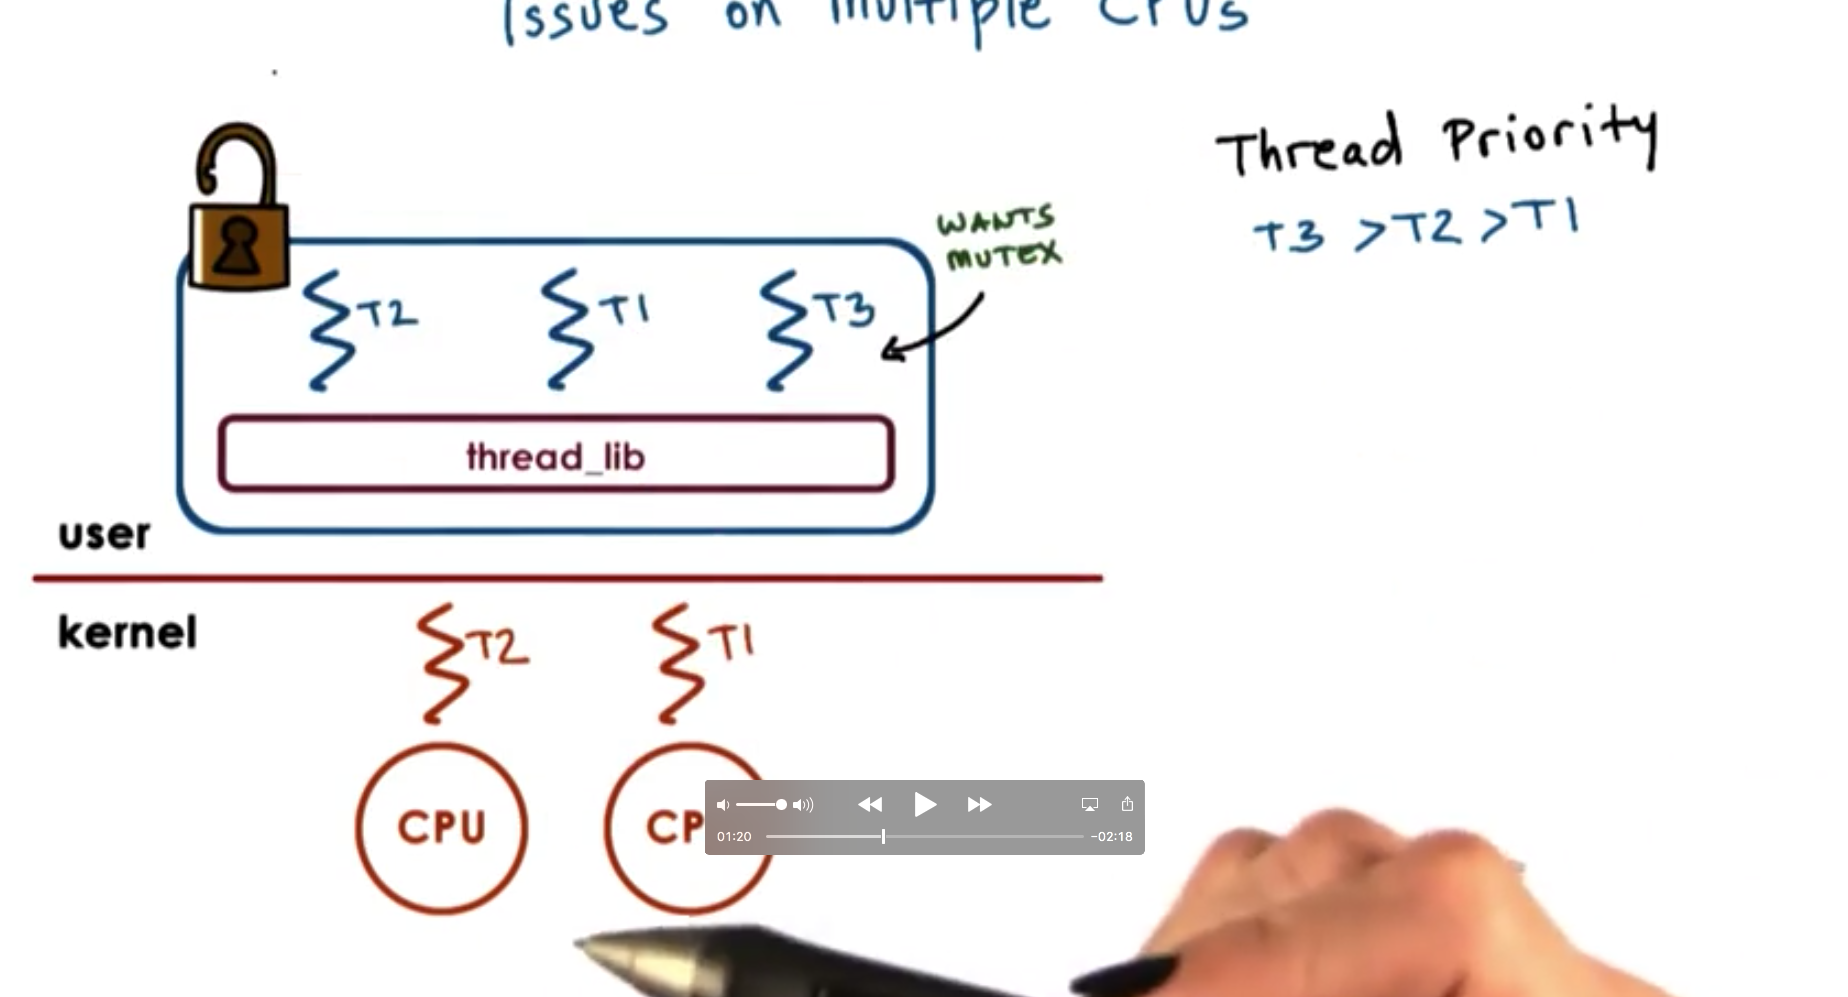 Issues on Multiple CPUs
Thread Priority
T3 > T2 > T1
WANTS
MUTEX
T2
T1
T3
thread_lib
user
kernel
T2
T1
CPU
CP
01:20
-02:18